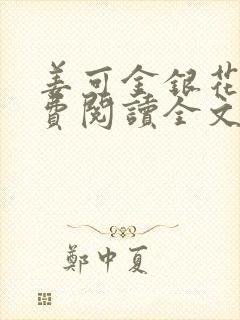 姜可金銀花
費閱讀全文
鄭中夏